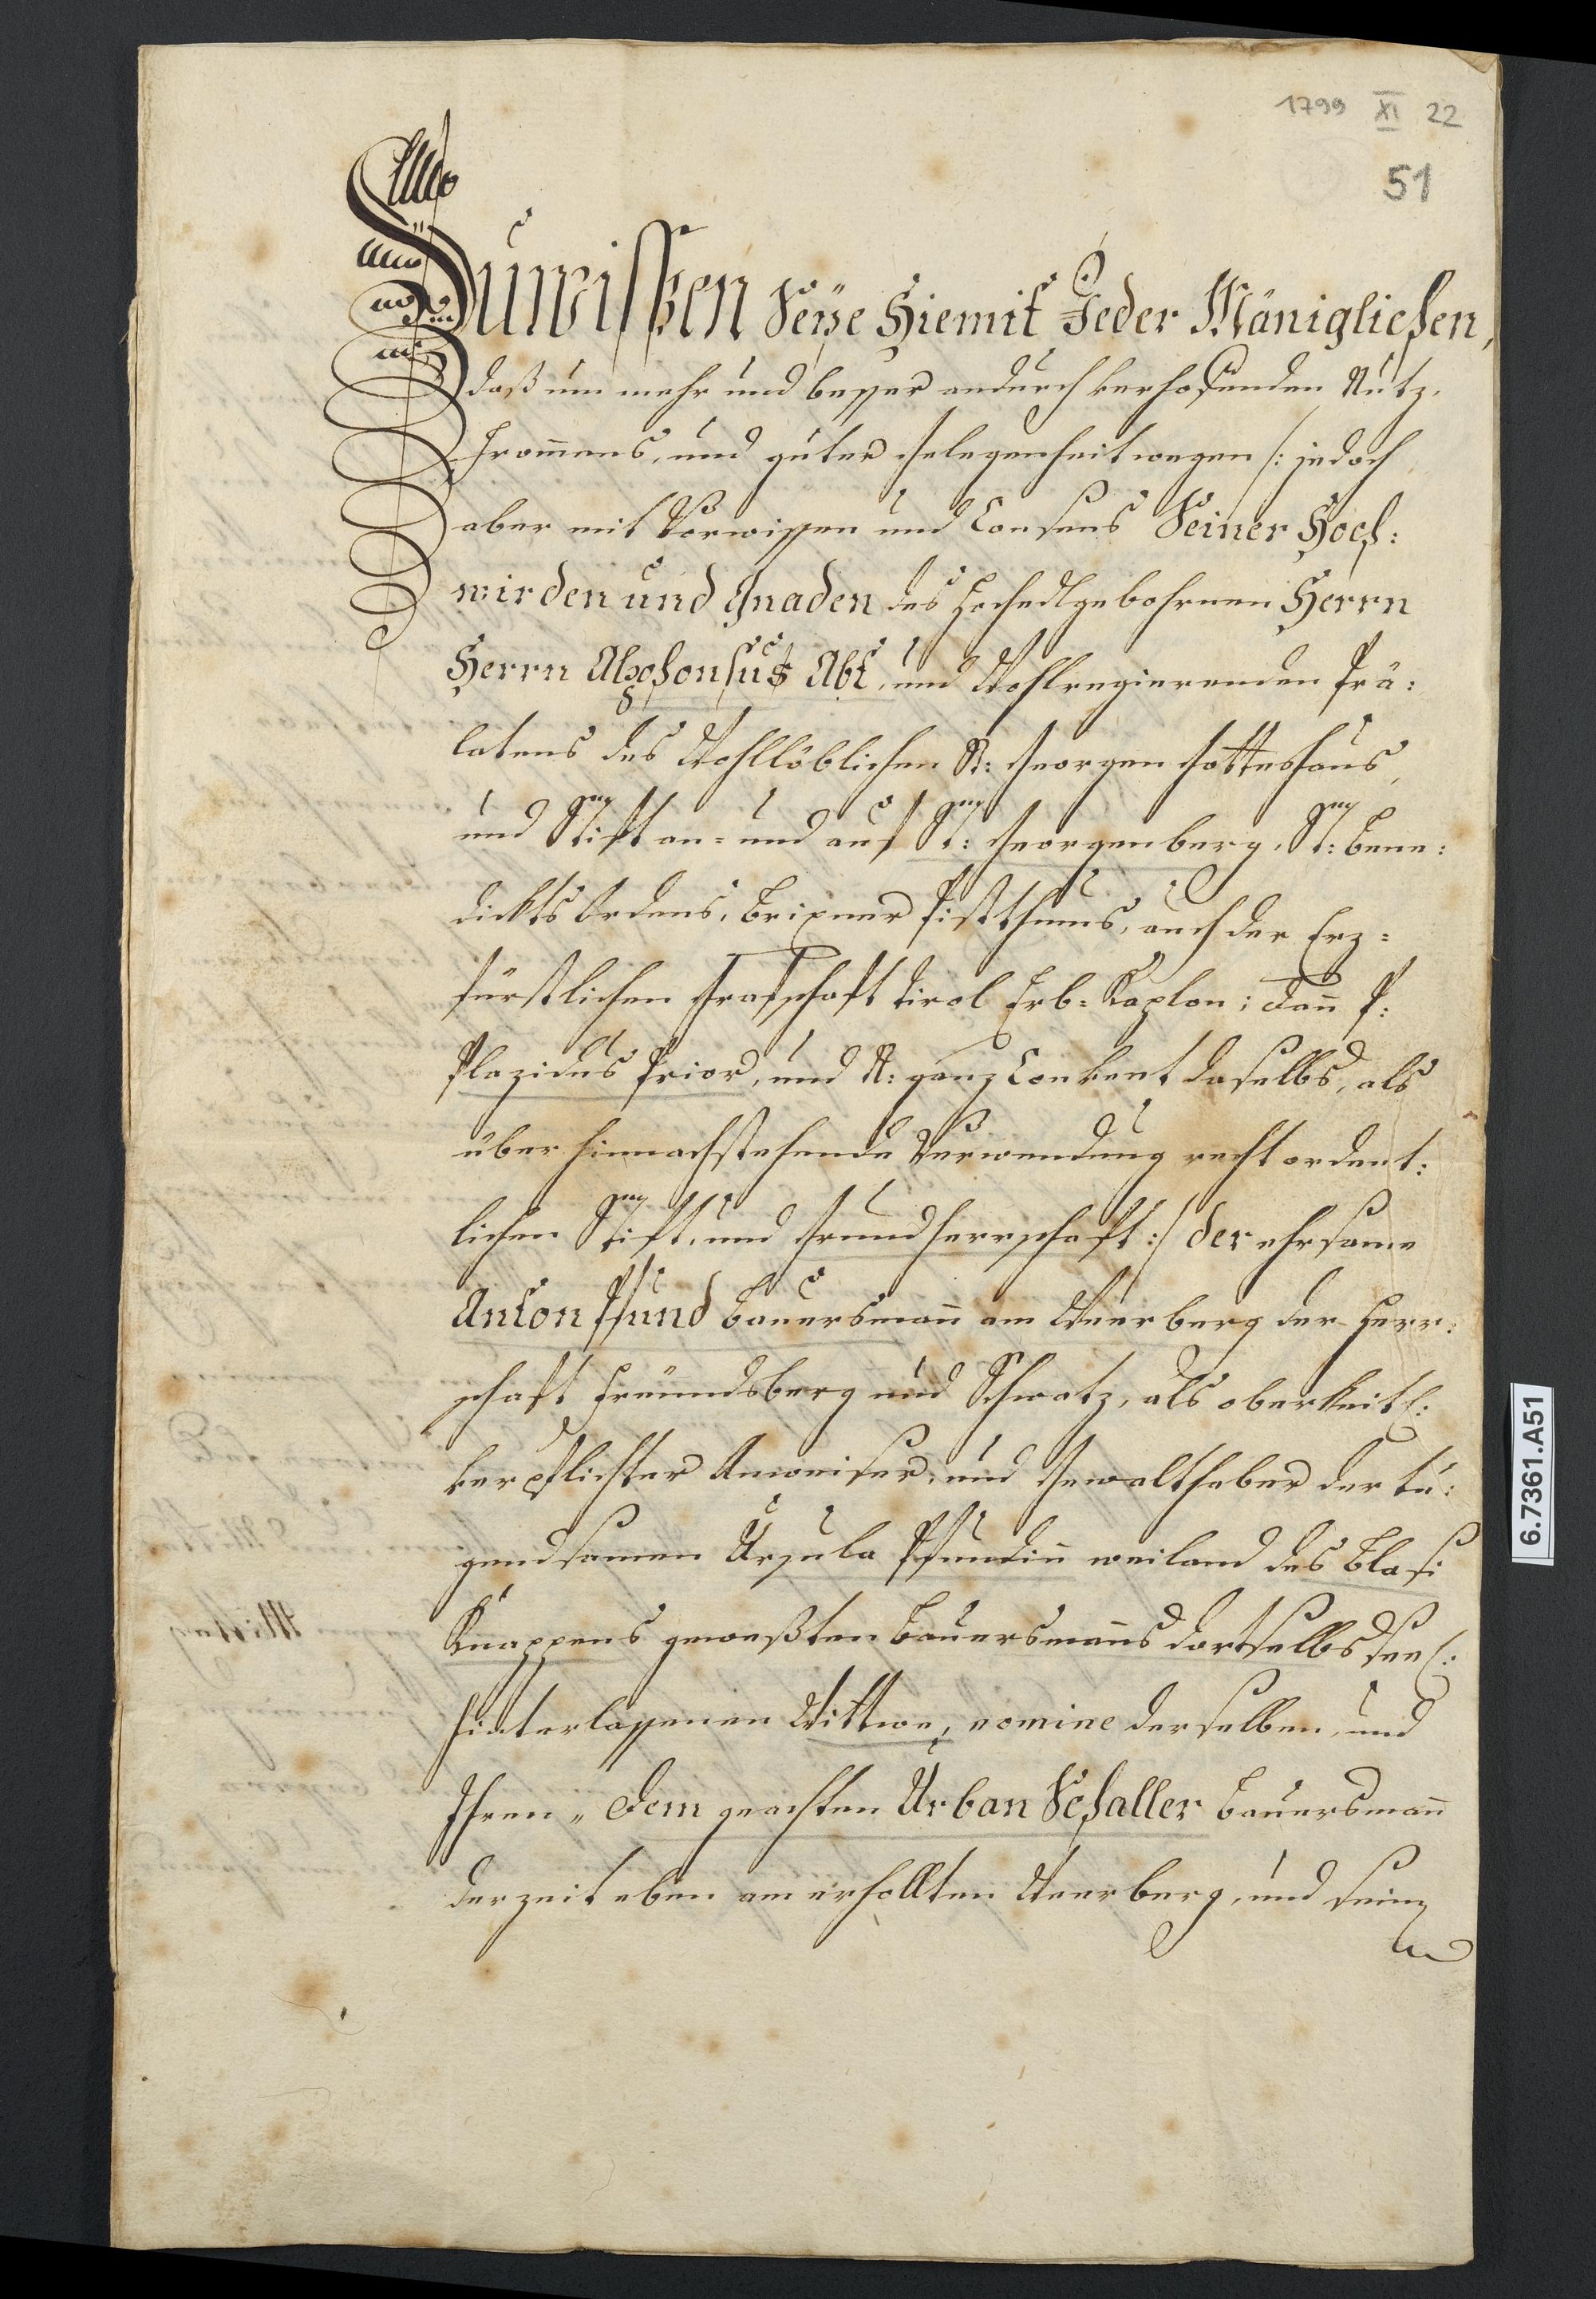 1799 XI 22
51
Zuwissen Seye Hiemit Jeder Mänigliehen,
daß um mehr und besser andurch verhofenden Nutz,
Frommens, und guter Gelegenheit wegen /: jedoch
aber mit Vorwissen und Consens Seiner Hoch:
wirden und Gnaden des Hochedlgebohrnen Herrn
Herrn Alphonsus Abt, und Wohlregierenden Prä:
latens des Wohllöblichen St: Georgen Gotteshaus,
und Stift an- und auf St: Georgenberg, St: Bene:
dickts Ordens, Brixner Pistthums, auch der Erz=
fürstlichen Grafschaft Tirol Erb=Kaplon; Dan̄ P:
Plazidus Prior, und N: ganz Convent daselbs, als
über hinnachstehende Verwendung recht ordent:
lichen Stift, und Grundherrschaft :/ der ehrsame
Anton Pfund Bauersman̄ am Weerberg der Herr:
schaft Freundsberg und Schwatz, als oberkeitl:
verpflichter Anweiser, und Gewalthaber der tu:
gendsamen Ursula Pfundin weiland des Blasi
Knappens geweßten Bauersman̄s dortselbs seel:
hinterlassenen Wittwe, nomine derselben, und
Ihren „ Dem geachten Urban Schaller Bauersman̄
derzeit eben am erhollten Weerberg, und sein
6.7361.A51